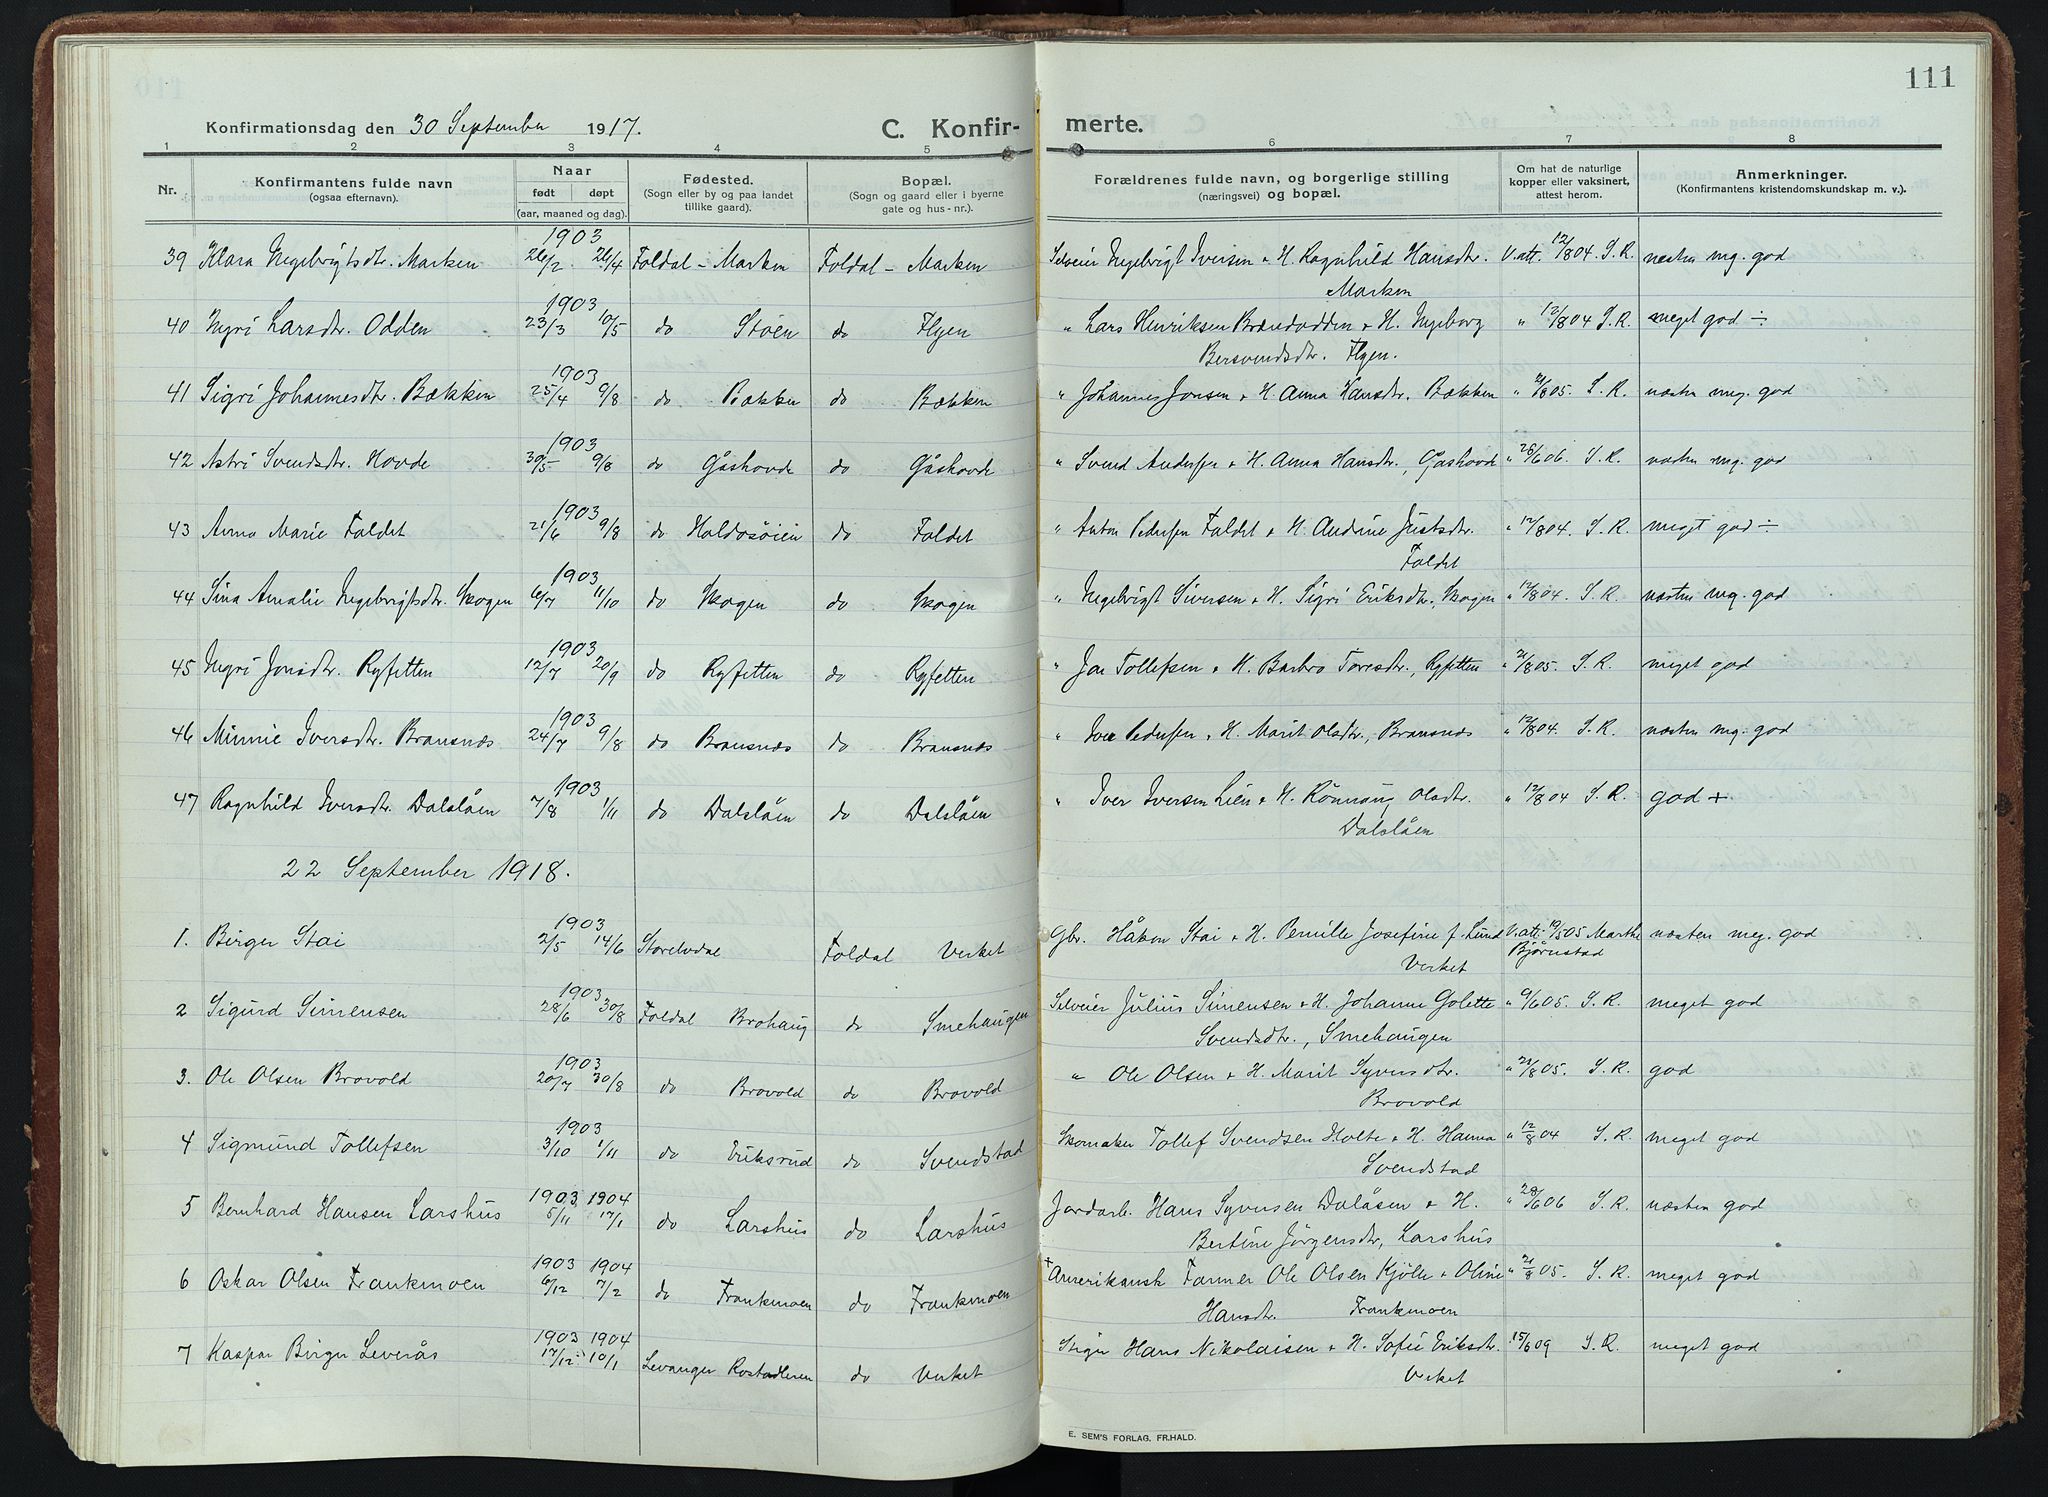 111
Konfirmationsdag den 30 September 1917. C. Konfir- merte.
1 2 3 4 5 6 7 8
Nr. Konfirmantens fulde navn (ogsaa efternavn). Naar født døpt (aar, maaned og dag). Fødested. (Sogn eller by og paa landet tillike gaard). Bopæl. (Sogn og gaard eller i byerne gate og hus-nr.). Forældrenes fulde navn, og borgerlige stilling (næringsvei) og bopæl. Om hat de naturlige kopper eller vaksinert, attest herom. Anmerkninger. (Konfirmantens kristendomskundskap m. v.).
1903
39 Klara Ingebrigtsdtr. Marken 26/2 26/4 Foldal - Marken Foldal - Marken Selveier Ingebrigt Iversen + H. Ragnhild Hansdtr. V. att. 12/804 S. R. næsten mg. god
Marken
1903
40 Ingri Larsdtr. Odden 23/3 10/5 do Støen do Flyen " Lars Henriksen Brændodden + H. Ingeborg " 12/804 S. R. meget god ÷
Bersvendsdtr. Flyen.
1903
41 Sigri Johannesdtr. Bækken 25/4 9/8 do Bækken do Bækken " Johannes Jonsen + H. Anna Hansdtr. Bækken " 21/805. S. R. næsten meg. god
1903
42 Astri Svendsdtr. Hovde 30/5 9/8 do Gåshovde do Gåshovde " Svend Andersen + H. Anna Hansdtr., Gåshovde " 28/606. S. R. næsten mg. god
1903
43 Anna Marie Foldet 21/6 9/8 do Holdosøien do Foldet " Anton Pedersen Foldet + H. Andrine Justsdtr. " 12/804. S. R. meget god ÷
Foldet
1903
44 Sina Amalie Ingebrigtsdtr. Skogen 6/7 11/10 do Skogen do Skogen " Ingebrigt Siversen + H. Sigri Eriksdtr., Skogen " 12/804. S. R. næsten mg. god
1903
45 Ingri Jonsdtr. Ryfetten 12/7 20/9 do Ryfetten do Ryfetten " Jon Tollefsen + H. Barbro Toresdtr., Ryfetten " 21/805. S. R. meget god
1903
46 Minnie Iversdtr. Bransnæs 24/7 9/8 do Bransnæs do Bransnæs " Iver Pedersen + H. Marit Olsdtr., Bransnæs " 12/804. S. R. næsten mg. god
1903
47 Ragnhild Iversdtr. Dalslåen 7/8 1/11 do Dalslåen do Dalslåen " Iver Iversen Lien + H. Rönnaug Olsdtr. " 12/804 S. R. god +
Dalslåen
22 September 1918.
1903
1. Birger Stai 2/5 14/6 Storelvdal Foldal Verket Gbr. Håkon Stai + H. Pernille Josefine f. Lund V. att. 19/505 Marthe næsten meg. god
Verket Bjørnstad
1903
2 Sigurd Simensen 28/6 30/8 Foldal Brohaug do Smehaugen Selveier Julius Simensen + H. Johanne Golette " 9/605. S. R. meget god
Svendsdtr., Smehaugen
1903
3. Ole Olsen Brovold 20/7 30/8 do Brovold do Brovold " Ole Olsen + H. Marit Syversdtr. " 21/805. S. R. god
Brovold
1903
4 Sigmund Tollefsen 3/10 1/11 do Eriksrud do Svendstad Skomaker Tollef Svendsen Holte + H. Hanna " 12/804 S. R. meget god
Svendstad
1903 1904
5 Bernhard Hansen Larshus 5/11 17/1 do Larshus do Larshus Jordarb. Hans Syversen Dalåsen + H. " 28/606 S. R. næsten god
Bertine Jørgensdtr, Larshus
1903 1904
6 Oskar Olsen Frankmoen 6/12 7/2 do Frankmoen do Frankmoen + Amerikansk Farmer Ole Olsen Kjølle + Oline " 21/805. S. R. meget god
Hansdtr. Frankmoen
1903 1904
7 Kaspar Birger Leverås 17/12 10/1 Levanger Rostadleren do Verket Stiger Hans Nikolaisen + H. Sofie Eriksdtr. 15/609 S. R. meget god
Verket
E. SEM'S FORLAG, FR.HALD.